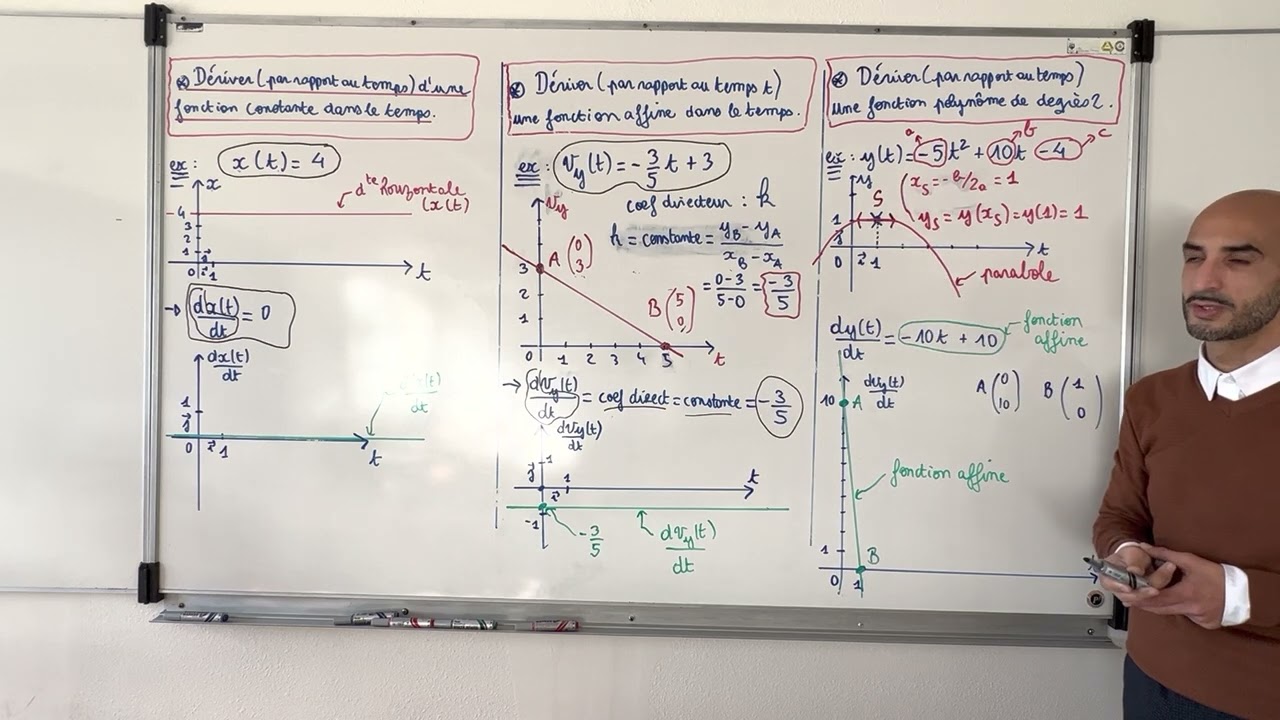 ⊛ Dériver (par rapport au temps) d'une
fonction constante dans le temps.
ex : x(t) = 4
x
dte horizontale
(x(t)
4
3
2
1
j
0 i 1
t
→ dx(t)/dt = 0
dx(t)/dt
1
j
0 i 1
t
⊛ Dériver (par rapport au temps t)
une fonction affine dans le temps.
ex : vy(t) = -3/5 t + 3
vy
coef directeur : k
k = constante = (yB - yA)/(xB - xA)
= (0-3)/(5-0) = -3/5
A (0 3)
B (5 0)
3
2
1
0 1 2 3 4 5
t
→ dvy(t)/dt = coef direct = constante = -3/5
dvy(t)/dt
1
j
i 1
t
-1
-3/5
dvy(t)/dt
⊛ Dériver (par rapport au temps)
une fonction polynôme de degrès 2.
a b c
ex : y(t) = -5t² + 10t - 4
y
S
xS = -b/2a = 1
yS = y(xS) = y(1) = 1
1
j
0 i 1
t
parabole
dy(t)/dt = -10t + 10
fonction
affine
dvy(t)/dt
A (0 10) B (1 0)
10 A
fonction affine
1
B
0 1